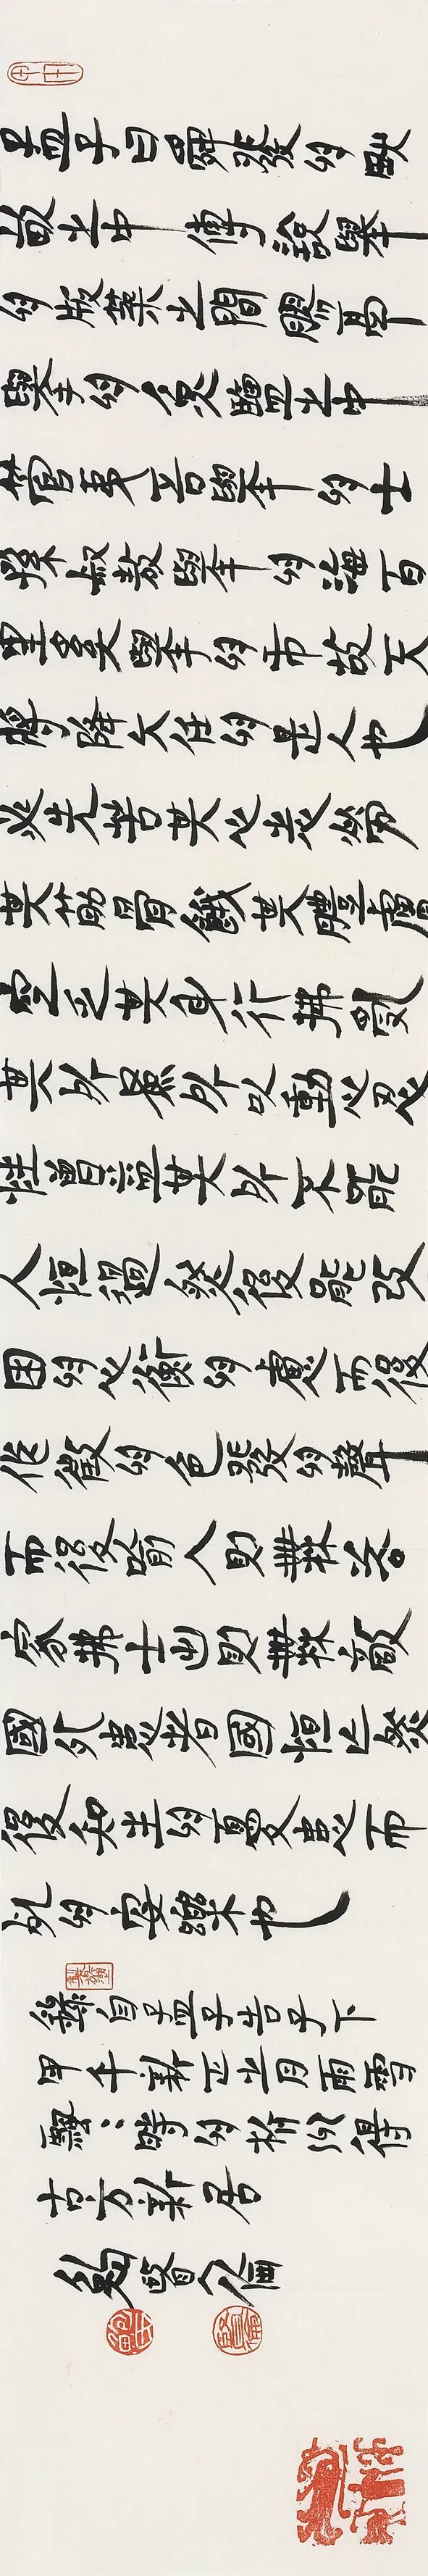 孟子曰舜發於畎
畝之中傅說舉
於版築之間膠鬲
舉於魚鹽之中
管夷吾舉於士
孫叔敖舉於海百
里奚舉於市故天
將降大任於是人也
必先苦其心志勞
其筋骨餓其體膚
空乏其身行拂亂
其所為所以動心忍
性曾益其所不能
人恒過然後能改
困於心衡於慮而後
作徵於色發於聲
而後喻入則無法
家拂士出則無敵
國外患者國恒亡然
後知生於憂患而
死於安樂也
錄自孟子告子下
甲午新正之月雨雪
飄〻時於得
方新居
鮑賢倫